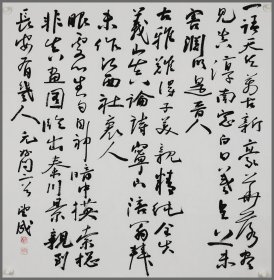 一语天然万古新豪華落尽
見真淳南窗白日羲皇上未
害渊明是晋人
古雅難将子美親精纯全失
義山真論詩寧下涪翁拜
未作江西社裏人
眼處心生句自神暗中摸索總
非真画图临出秦川景親到
長安有幾人 元好问